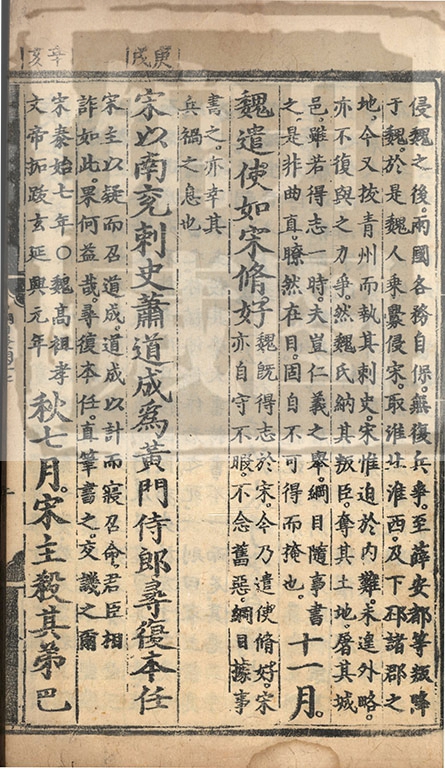 庚戌
辛亥
侵魏之後。兩國各務自保。無復兵爭。至薛安都等叛降
于魏。於是魏人乘釁侵宋。取淮北淮西。及下邳諸郡之
地。今又拔青州而執其刺史。宋惟迫於內難。未遑外略。
亦不復與之力爭。然魏氏納其叛臣。奪其土地。屠其城
邑。雖若得志一時。夫豈仁義之舉。綱目隨事書
之。是非曲直。瞭然在目。固自不可得而掩也。十一月。
魏遣使如宋脩好魏旣得志於宋。今乃遣使脩好。宋
亦自守不暇。不念舊惡。綱目據事
書之。亦幸其
兵禍之息也
宋以南兗刺史蕭道成爲黃門侍郎尋復本任
宋主以疑而召道成。道成以計而寢召命。君臣相
詐如此。果何益哉。尋復本任。直筆書之。交譏之爾
宋泰始七年〇魏高祖孝
文帝拓跋玄延興元年
秋七月。宋主殺其弟巴